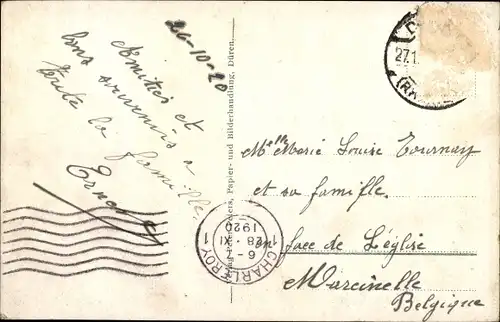 26-10-20
Amitiés et
bons souvenirs a
toute la famille.
Ernest
Papier- und Bilderhandlung, Düren.
Melle Marie Louise Tournay
et sa famille.
en face de L'église
Marcinelle
Belgique
CHARLEROY 1
6-7
28·XI
1920
27.1